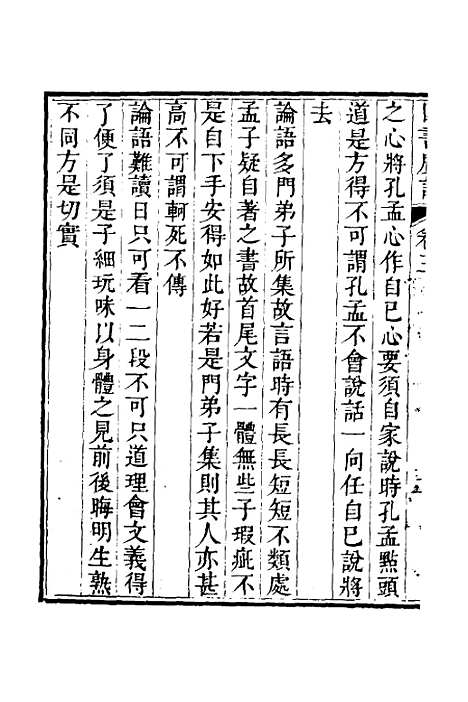 之心將孔孟心作自己心要須自家說時孔孟點頭
道是方得不可謂孔孟不會說話一向任自己說將
去
論語多門弟子所集故言語時有長長短短不類處
孟子疑自著之書故首尾文字一體無些子瑕疵不
是自下手安得如此好若是門弟子集則其人亦甚
高不可謂軻死不傳
論語難讀日只可看一二段不可只道理會文義得
了便了須是子細玩味以身體之見前後晦明生熟
不同方是切實